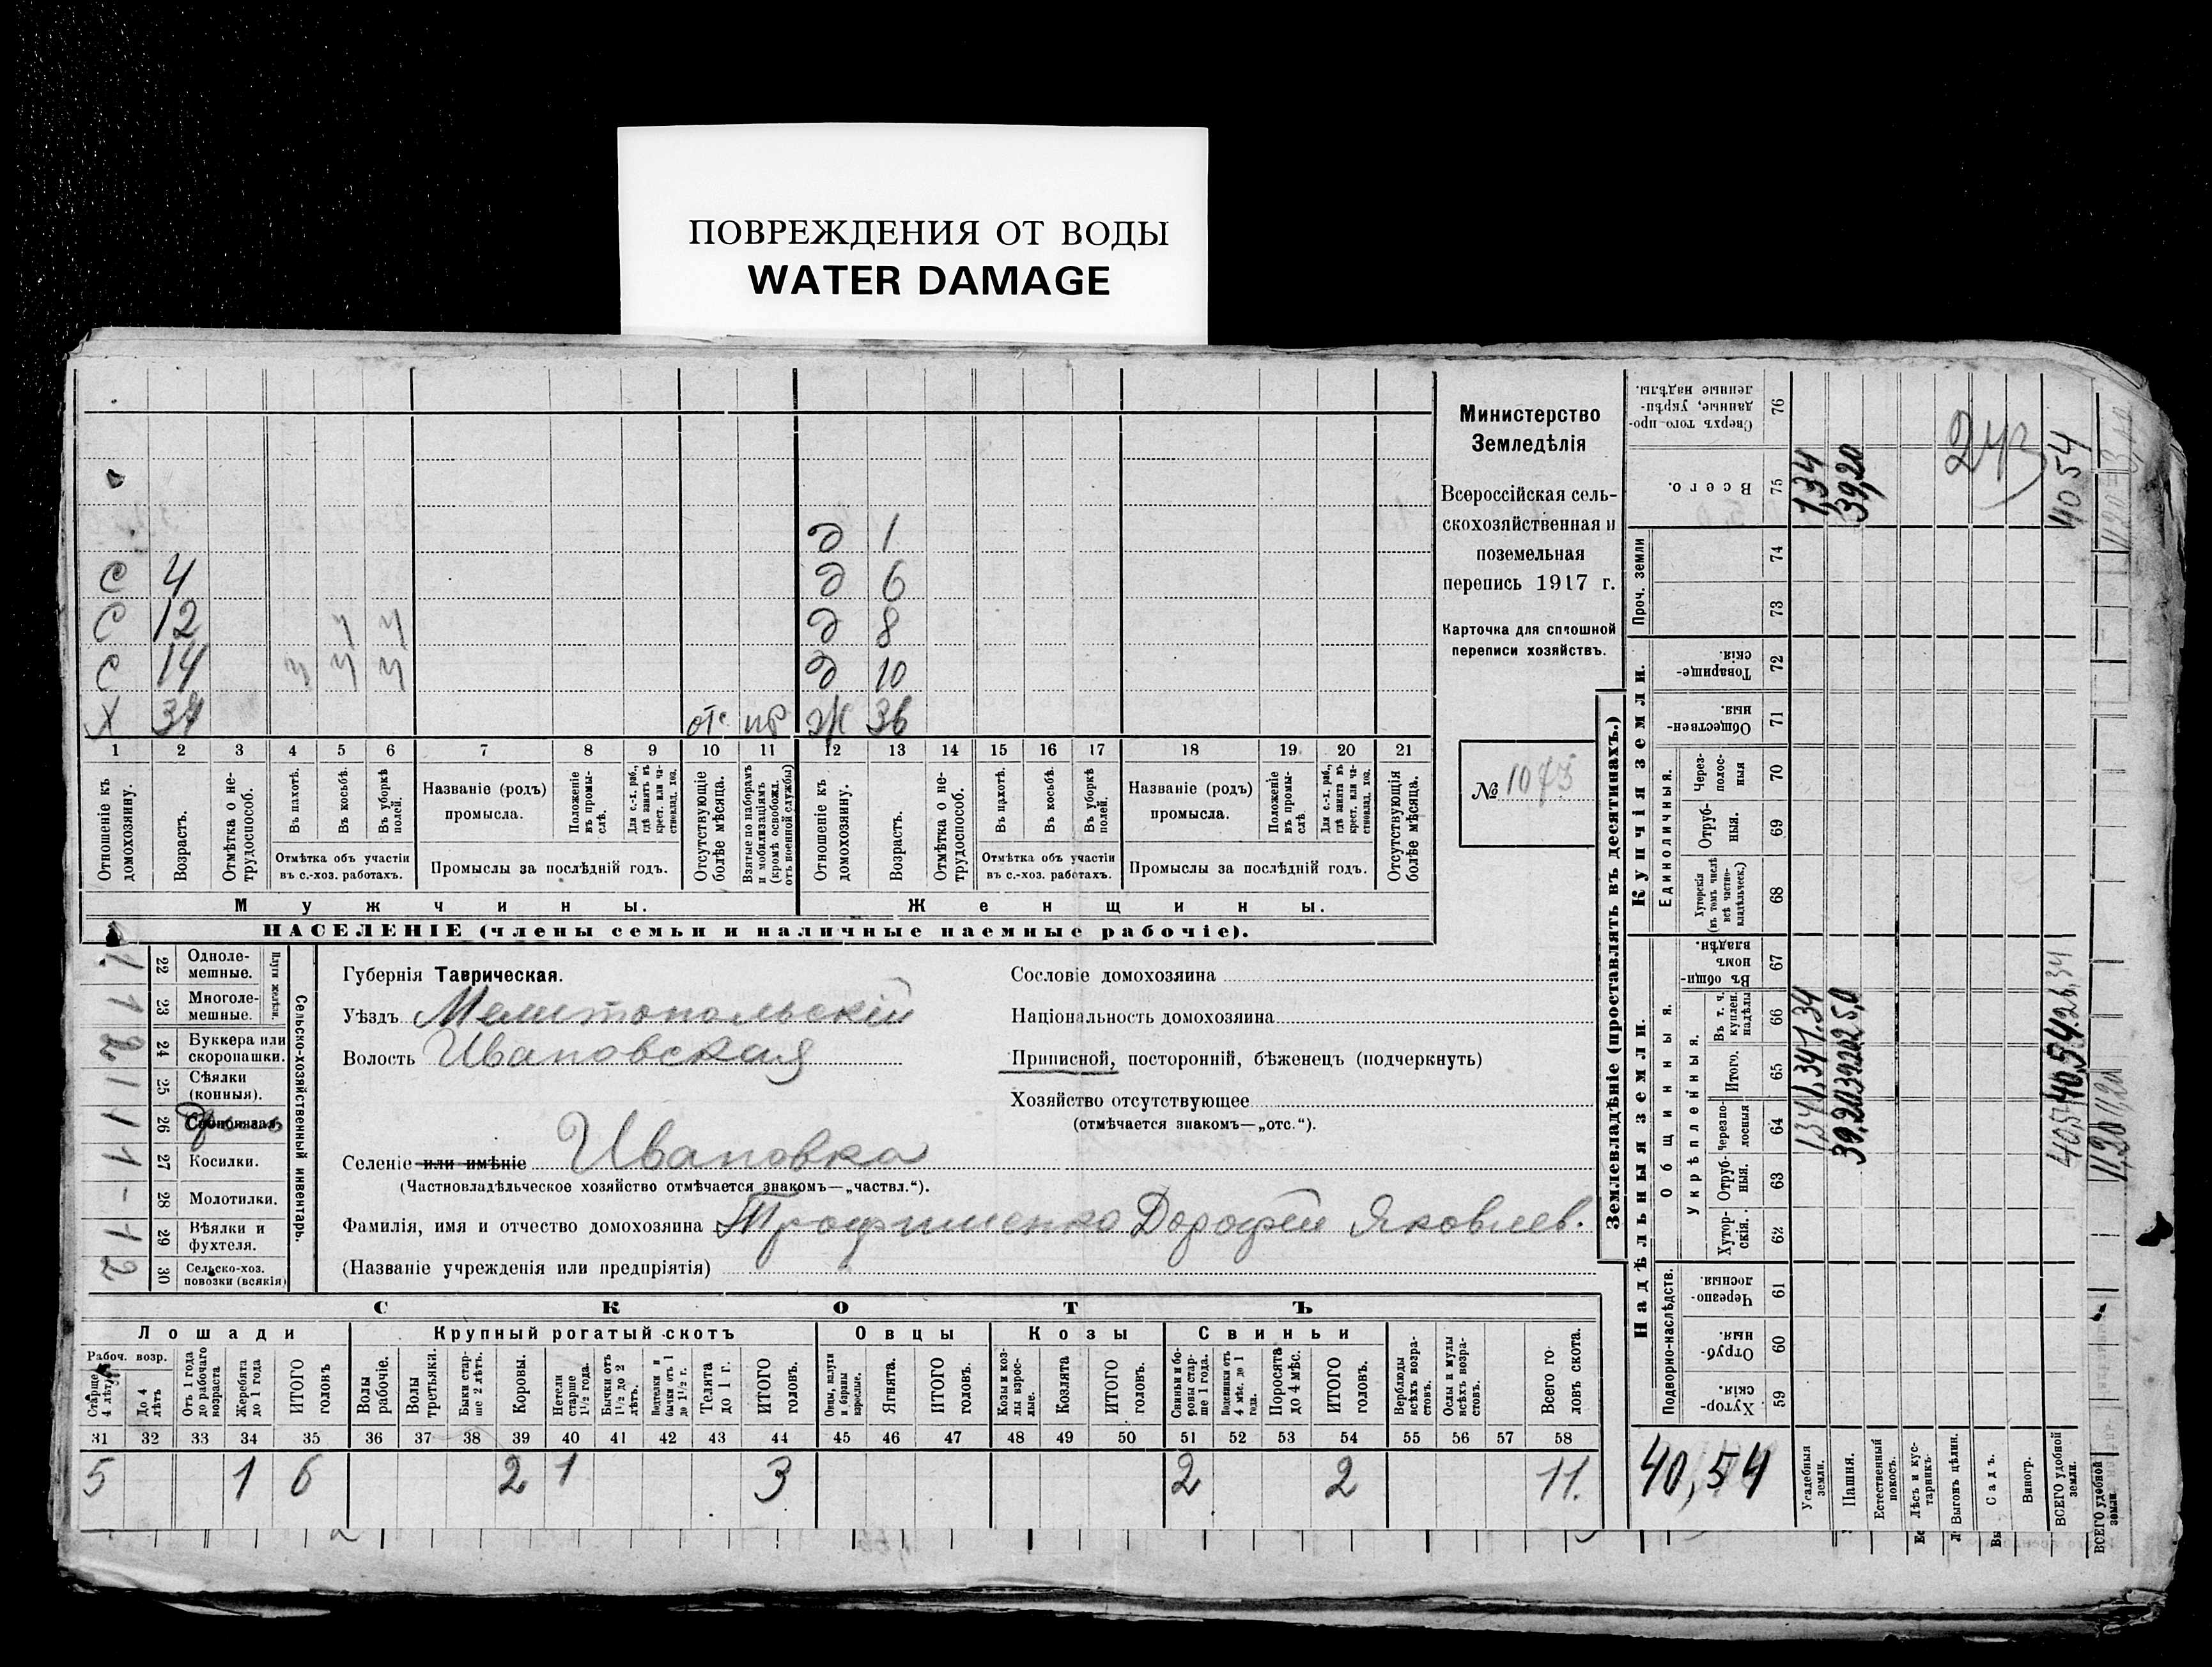 ПОВРЕЖДЕНИЯ ОТ ВОДЫ
WATER DAMAGE
д 1
С 4 д 6
С 12 ч ч д 8
С 14 ч ч ч д 10
Х 37 отс пр ж 36
1 2 3 4 5 6 7 8 9 10 11 12 13 14 15 16 17 18 19 20 21
Отношеніе къ домохозяину.
Возрастъ.
Отмѣтка о нетрудоспособ.
Въ пахотѣ.
Въ косьбѣ.
Въ уборкѣ полей.
Отмѣтка объ участіи
въ с.-хоз. работахъ.
Названіе (родъ)
промысла.
Положеніе въ промыслѣ.
Для с.-х. раб., гдѣ занятъ въ крест. или частновлад. хоз.
Промыслы за послѣдній годъ.
Отсутствующіе болѣе мѣсяца.
Взятые по наборамъ и мобилизаціямъ (кромѣ освобожд. отъ военной службы)
Отношеніе къ домохозяину.
Возрастъ.
Отмѣтка о нетрудоспособ.
Въ пахотѣ.
Въ косьбѣ.
Въ уборкѣ полей.
Отмѣтка объ участіи
въ с.-хоз. работахъ.
Названіе (родъ)
промысла.
Положеніе въ промыслѣ.
Для с.-х. раб., гдѣ занята въ крест. или частновлад. хоз.
Промыслы за послѣдній годъ.
Отсутствующія болѣе мѣсяца.
Мужчины. Женщины.
НАСЕЛЕНІЕ (члены семьи и наличные наемные рабочіе).
Министерство
Земледѣлія
Всероссійская сель-
скохозяйственная и
поземельная
перепись 1917 г.
Карточка для сплошной
переписи хозяйствъ.
№ 1073
Сельско-хозяйственный инвентарь.
Плуги желѣзн.
1 22 Одноле-
мешные.
1 23 Многоле-
мешные.
2 24 Буккера или
скоропашки.
1 25 Сѣялки
(конныя).
1 26
1 27 Косилки.
- 28 Молотилки.
1 29 Вѣялки и
фухтеля.
2 30 Сельско-хоз.
повозки (всякія)
Губернія Таврическая.
Уѣздъ Мелитопольскій
Волость Ивановская
Селеніе или имѣніе Ивановка
(Частновладѣльческое хозяйство отмѣчается знакомъ—„частвл.“).
Фамилія, имя и отчество домохозяина Трофименко Дорофей Яковлев.
(Названіе учрежденія или предпріятія)
Сословіе домохозяина
Національность домохозяина
Приписной, посторонній, бѣженецъ (подчеркнуть)
Хозяйство отсутствующее
(отмѣчается знакомъ—„отс.“).
СКОТЪ
Лошади Крупный рогатый скотъ Овцы Козы Свиньи
Рабоч. возр.
Старше 4 лѣтъ
До 4 лѣтъ
Отъ 1 года до рабочаго возраста
Жеребята до 1 года
ИТОГО головъ
Волы рабочіе.
Волы третьяки.
Быки старше 2 лѣтъ.
Коровы.
Нетели старше 1½ года.
Бычки отъ 1½ до 2 лѣтъ.
Подтелки и бычки отъ 1 до 1½ г.
Телята до 1 г.
ИТОГО головъ.
Овцы, валухи и бараны взрослые.
Ягнята.
ИТОГО головъ.
Козы и козлы взрослые.
Козлята
ИТОГО головъ.
Свиньи и боровы старше 1 года.
Подсвинки отъ 4 мѣс. до 1 года.
Поросята до 4 мѣс.
ИТОГО головъ.
Верблюды всѣхъ возрастовъ.
Ослы и мулы всѣхъ возрастовъ.
Всего головъ скота.
31 32 33 34 35 36 37 38 39 40 41 42 43 44 45 46 47 48 49 50 51 52 53 54 55 56 57 58
5 1 6 2 1 3 2 2 11.
Землевладѣніе (проставлять въ десятинахъ.)
Надѣльныя земли. Купчія земли.
Подворно-наслѣдств.
Общинныя.
Укрѣпленныя.
Единоличныя.
Проч. земли
Хуторскія. 59
Отрубныя. 60
Черезполосныя. 61
Хуторскія. 62
Отрубныя. 63
Черезполосныя 64
Итого. 65
Въ т. ч. куплен. надѣлы 66
Въ общинномъ владѣн. 67
Хуторскія (въ томъ числѣ всѣ частновладѣльческ.) 68
Отрубныя. 69
Черезполосныя 70
Общественныя. 71
Товарищескія. 72
73
74
Всего. 75
Сверхъ того проданные, укрѣпленные надѣлы. 76
40,54
Усадебныя земли. 1,34 1,34 1.34 1,34
Пашня. 39,20 39,20 25,0 39,20
Естественный покосъ.
Лѣсъ и кустарникъ.
Выгонъ цѣлин.
Садъ.
Виногр.
ВСЕГО удобной земли. 40,54 40,54 26,34 40 54
243
ВСЕГО удобной земли
11,20